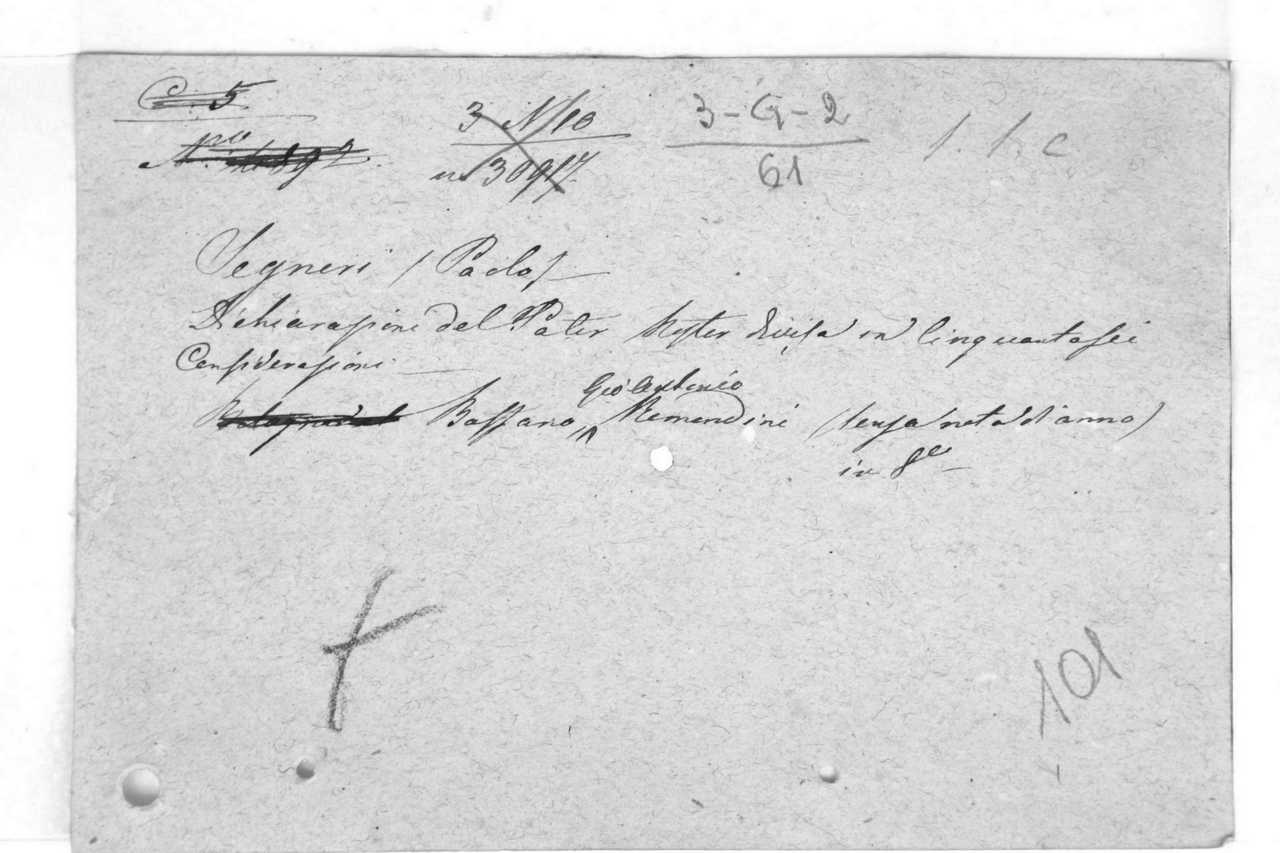 C. 5
3 N/10
n 30917.
3-G-2
61
1. 1. c
Segneri (Paolo)
Dichiarazione del Pater Noster divisa in Cinquantasei
Considerazioni
Bassano, Gio Antonio Remondini (senza nota d'anno)
in 8º
101